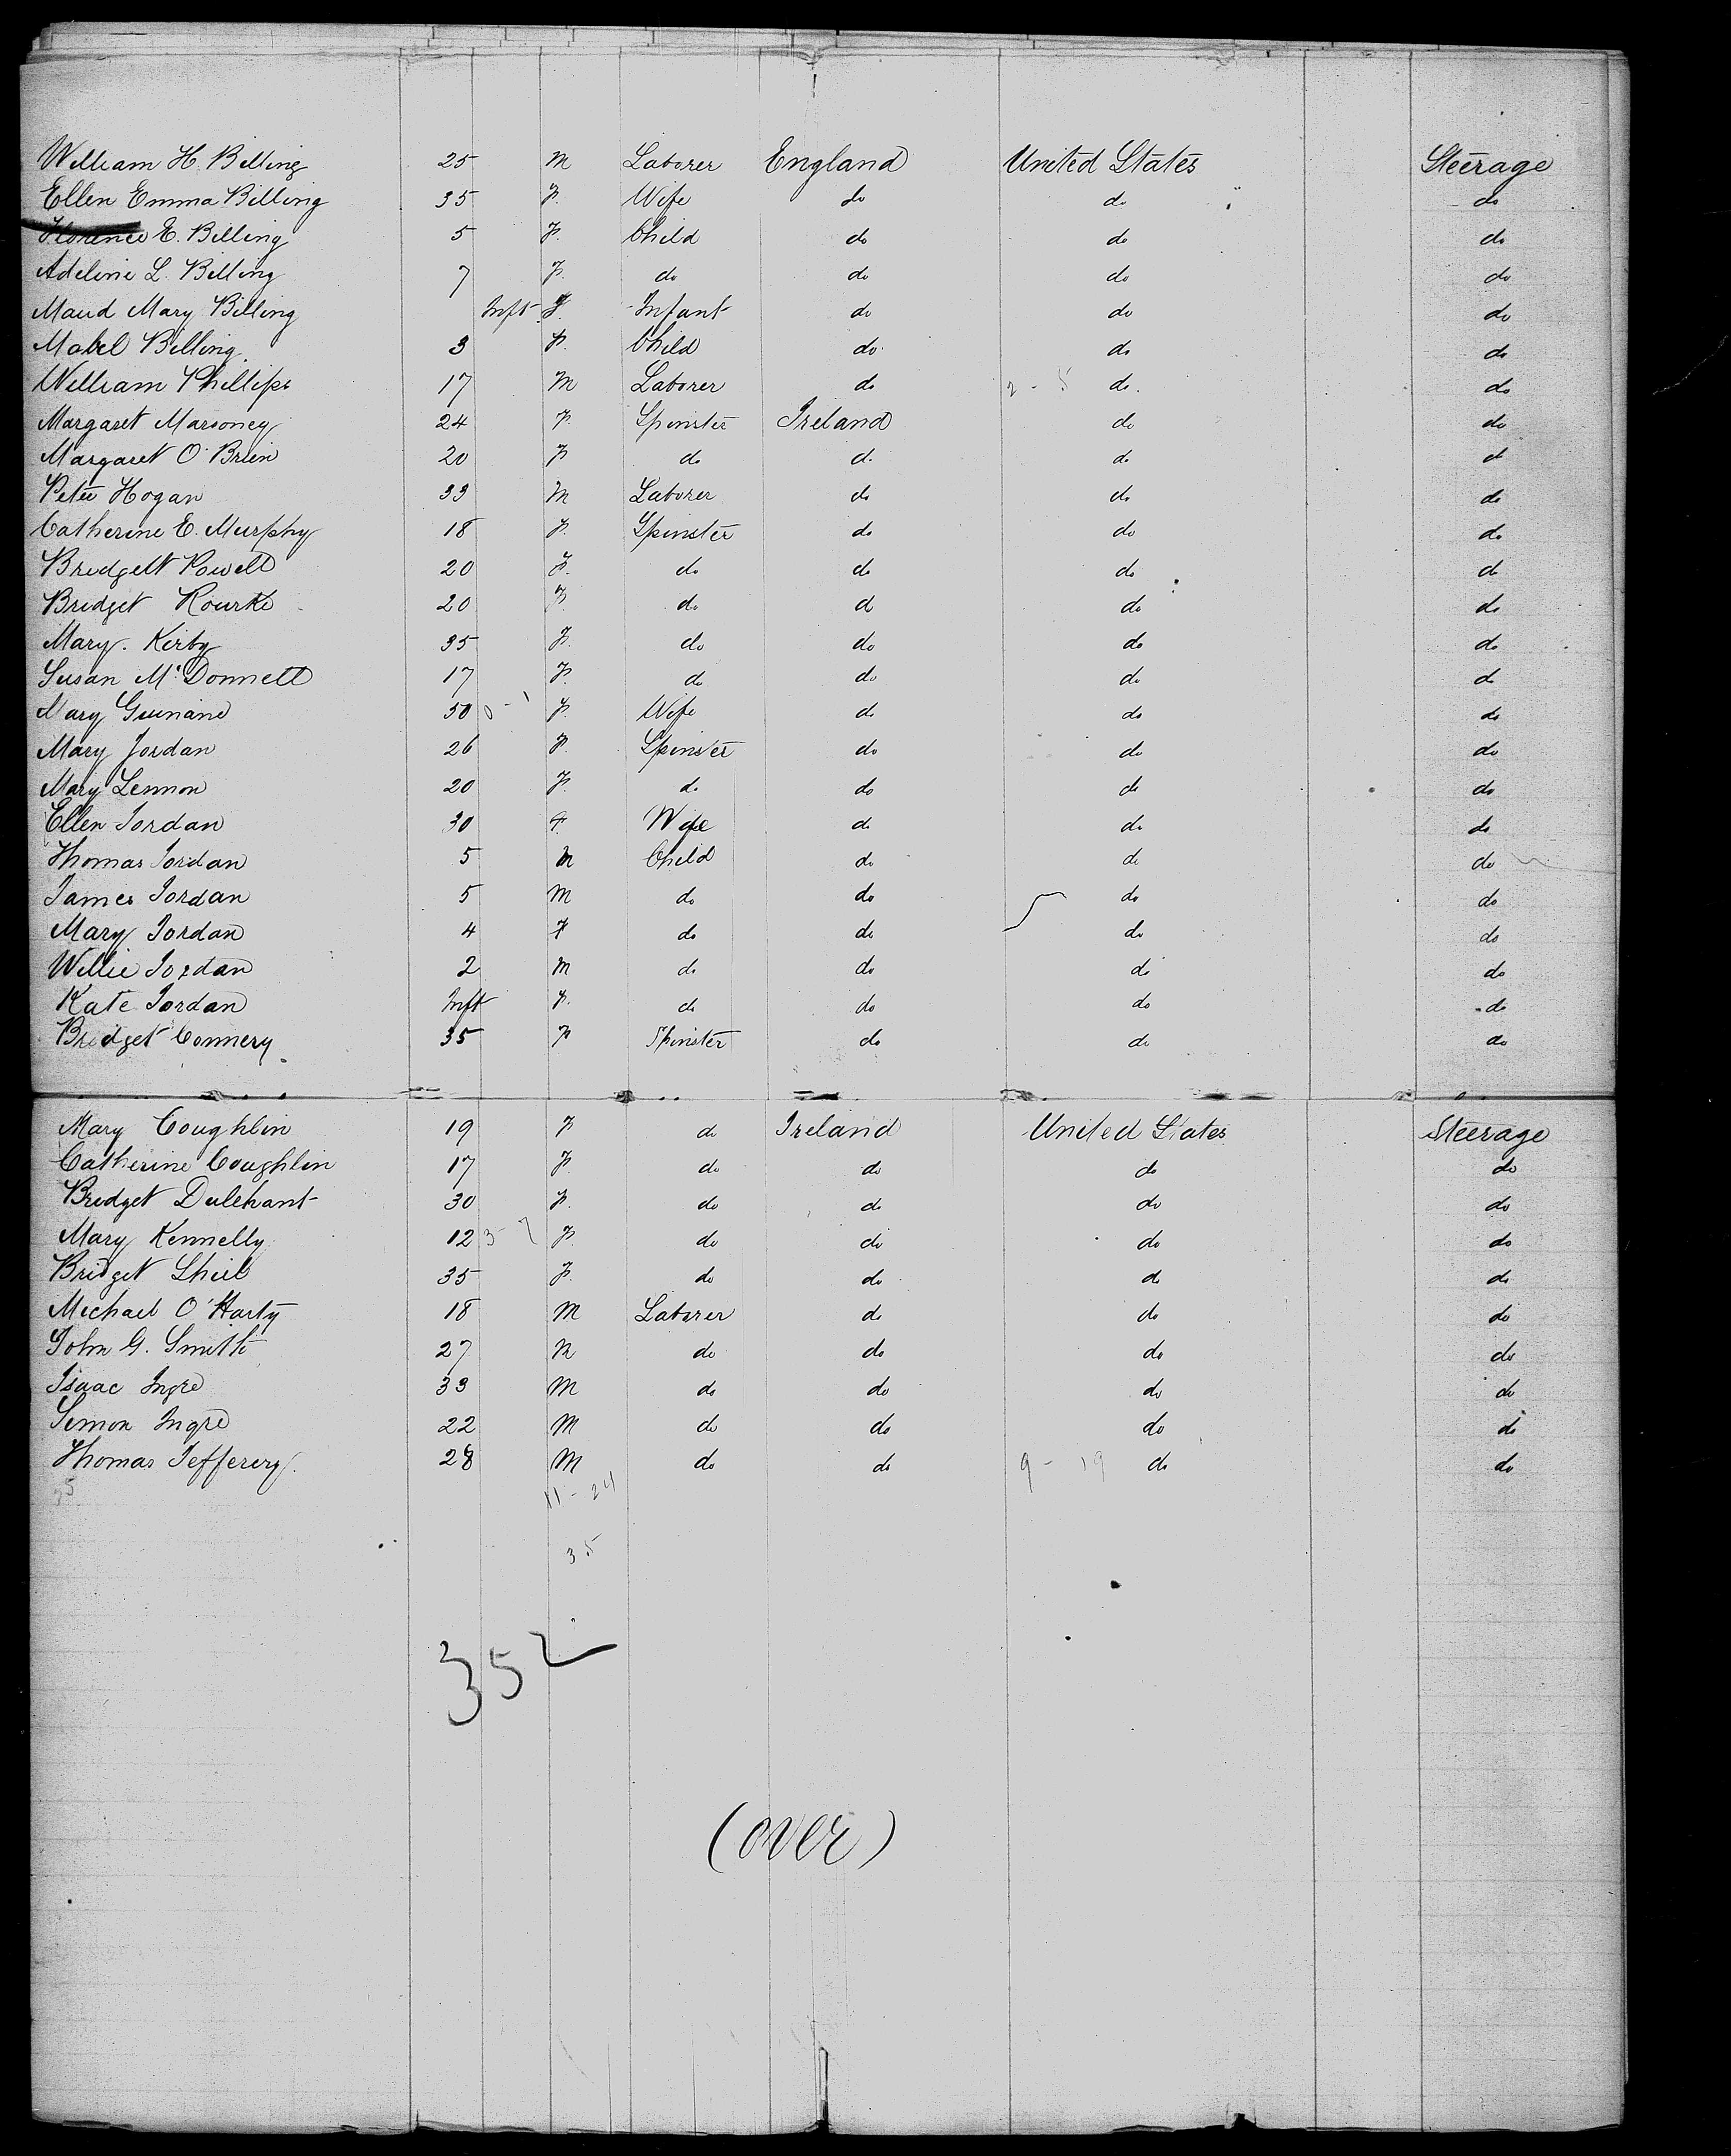 William H. Billing 25 M Laborer England United States Steerage
Ellen Emma Billing 35 F. Wife do do do
Florence E. Billing 5 F. Child do do do
Adeline L. Billing 7 F. do do do do
Maud Mary Billing Inft F. Infant do do do
Mabel Billing 3 F. Child do do do
William Phillips 17 M Laborer do 2 - 5 do. do
Margaret Maroney 24 F. Spinster Ireland do do
Margaret O'Brien 20 F do do do do
Peter Hogan 33 M Laborer do do do
Catherine E. Murphy 18 F. Spinster do do do
Bridgett Powell 20 F. do do do do
Bridget Rourke 20 F. do do do do
Mary. Kirby 35 F. do do do do
Susan McDonnell 17 F. do do do do
Mary Guinane 50 F. Wife do do do
Mary Jordan 26 F Spinster do do do
Mary Lennon 20 F. do do do do
Ellen Jordan 30 F. Wife do do do
Thomas Jordan 5 M Child do do do
James Jordan 5 M do do do do
Mary Jordan 4 F do do do do
Willie Jordan 2 M do do do do
Kate Jordan Inft F. do do do do
Bridget Connery 35 F Spinster do do do
Mary Coughlin 19 F do Ireland United States Steerage
Catherine Coughlin 17 F. do do do do
Bridget Dulehant 30 F. do do do do
Mary Kennelly 12 F. do do do do
Bridget Shiel 35 F. do do do do
Michael O'Harty 18 M Laborer do do do
John G. Smith 27 M do do do do
Isaac Ingre 33 M do do do do
Simon Ingre 22 M do do do do
Thomas Jefferery. 28 M do do 9 - 19 do do
35 11 - 24
35
352
(over)